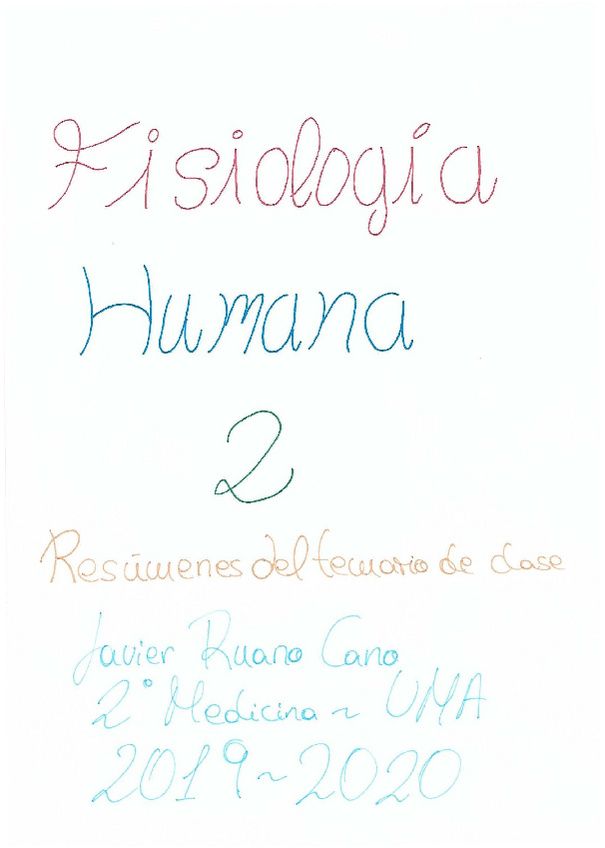 Fisiología
Humana
2
Resúmenes del temario de clase
Javier Ruano Cano
2º Medicina ~ UMA
2019~2020